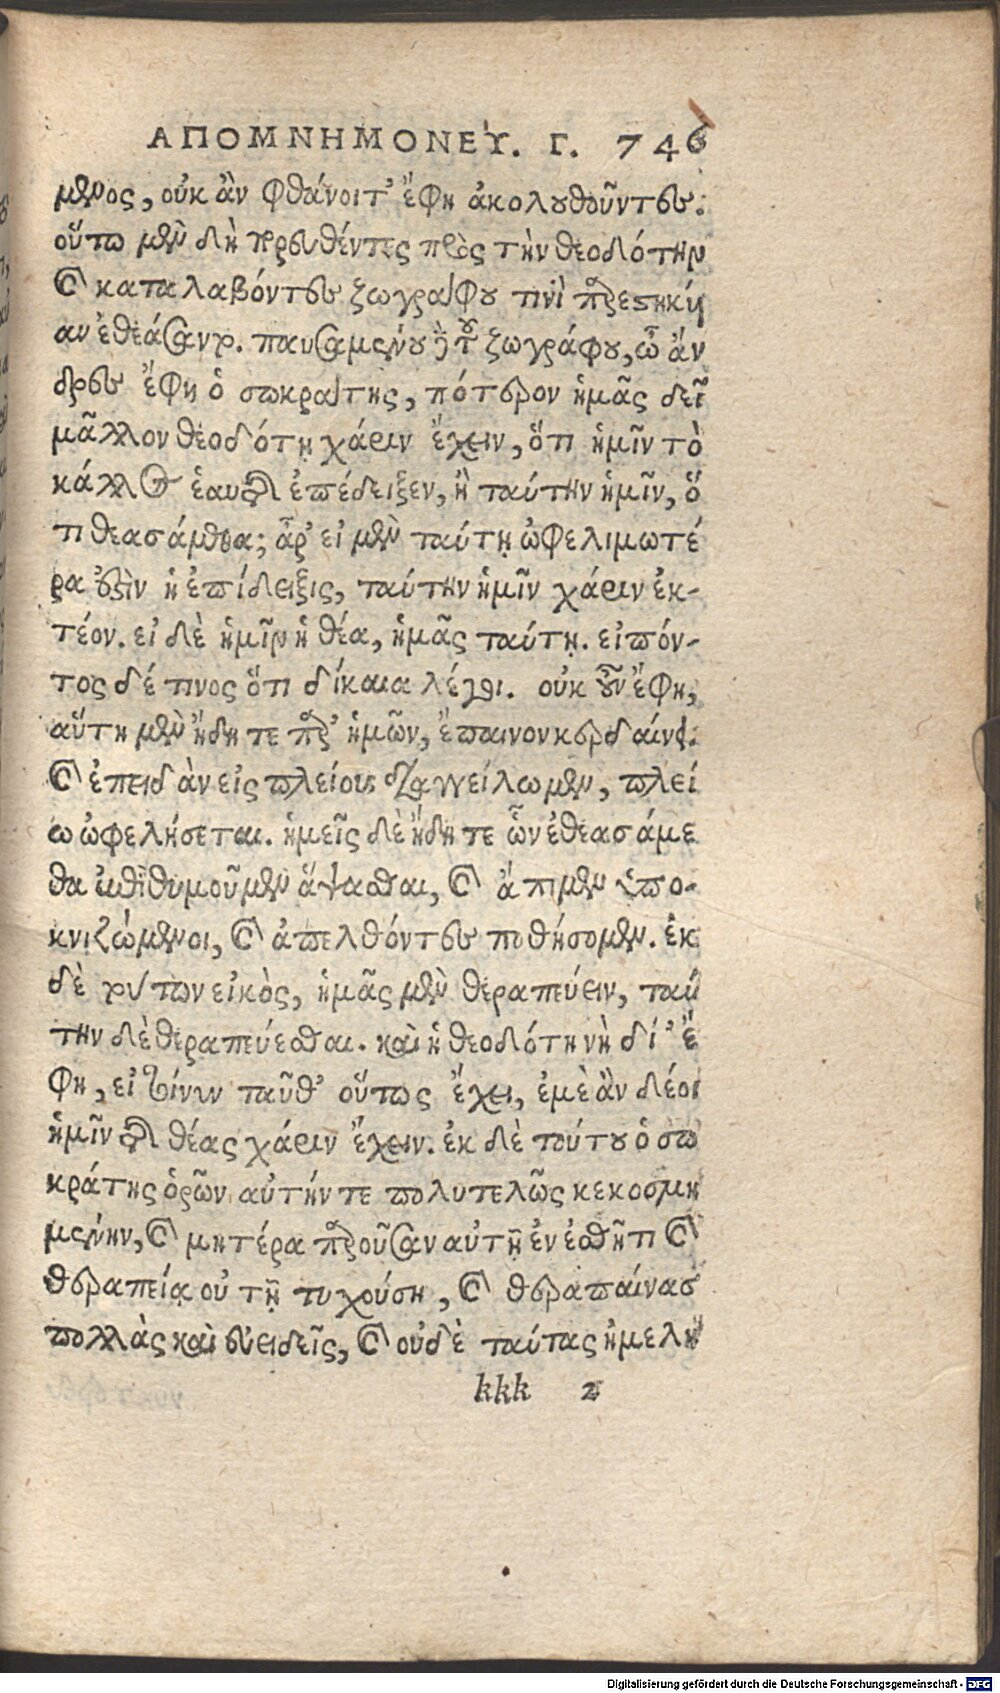 ΑΠΟΜΝΗΜΟΝΕΥ. Γ. 746
μενος, οὐκ ἂν φθάνοιτ' ἔφη ἀκολουθοῦντες.
οὕτω μὲν δὴ πορευθέντες πρὸς τὴν θεοδότην
καὶ καταλαβόντες ζωγράφῳ τινὶ παρεστηκυῖ
αν ἐθεάσαντο. παυσαμένου δὲ τοῦ ζωγράφου, ὦ ἄν
δρες ἔφη ὁ σωκράτης, πότερον ἡμᾶς δεῖ
μᾶλλον θεοδότῃ χάριν ἔχειν, ὅτι ἡμῖν τὸ
κάλλος ἑαυτῆς ἐπέδειξεν, ἢ ταύτην ἡμῖν, ὅ
τι θεασάμεθα; ἆρ' εἰ μὲν ταύτῃ ὠφελιμωτέ
ρα ἐστὶν ἡ ἐπίδειξις, ταύτην ἡμῖν χάριν ἑκ-
τέον. εἰ δὲ ἡμῖν ἡ θέα, ἡμᾶς ταύτῃ. εἰπόν-
τος δέ τινος ὅτι δίκαια λέγοι. οὐκ οὖν ἔφη,
αὕτη μὲν ἤδη τε παρ' ἡμῶν, ἔπαινον κερδαίνει.
καὶ ἐπειδὰν εἰς πλείους διαγγείλωμεν, πλεί
ω ὠφελήσεται. ἡμεῖς δὲ ἤδη τε ὧν ἐθεασάμε
θα ἐπιθυμοῦμεν ἅψασθαι, καὶ ἄπιμεν ὑπο-
κνιζόμενοι, καὶ ἀπελθόντες ποθήσομεν. ἐκ
δὲ τούτων εἰκὸς, ἡμᾶς μὲν θεραπεύειν, ταύ
την δὲ θεραπεύεσθαι. καὶ ἡ θεοδότη νὴ δί' ἔ
φη, εἰ τοίνυν ταῦθ' οὕτως ἔχει, ἐμὲ ἂν δέοι
ἡμῖν τῆς θέας χάριν ἔχειν. ἐκ δὲ τούτου ὁ σω
κράτης ὁρῶν αὐτήν τε πολυτελῶς κεκοσμη
μένην, καὶ μητέρα παροῦσαν αὐτῇ ἐν ἐσθῆτι καὶ
θεραπείᾳ οὐ τῇ τυχούσῃ, καὶ θεραπαίνας
πολλὰς καὶ εὐειδεῖς, καὶ οὐδὲ ταύτας ἠμελη
kkk 2
Digitalisierung gefördert durch die Deutsche Forschungsgemeinschaft - DFG